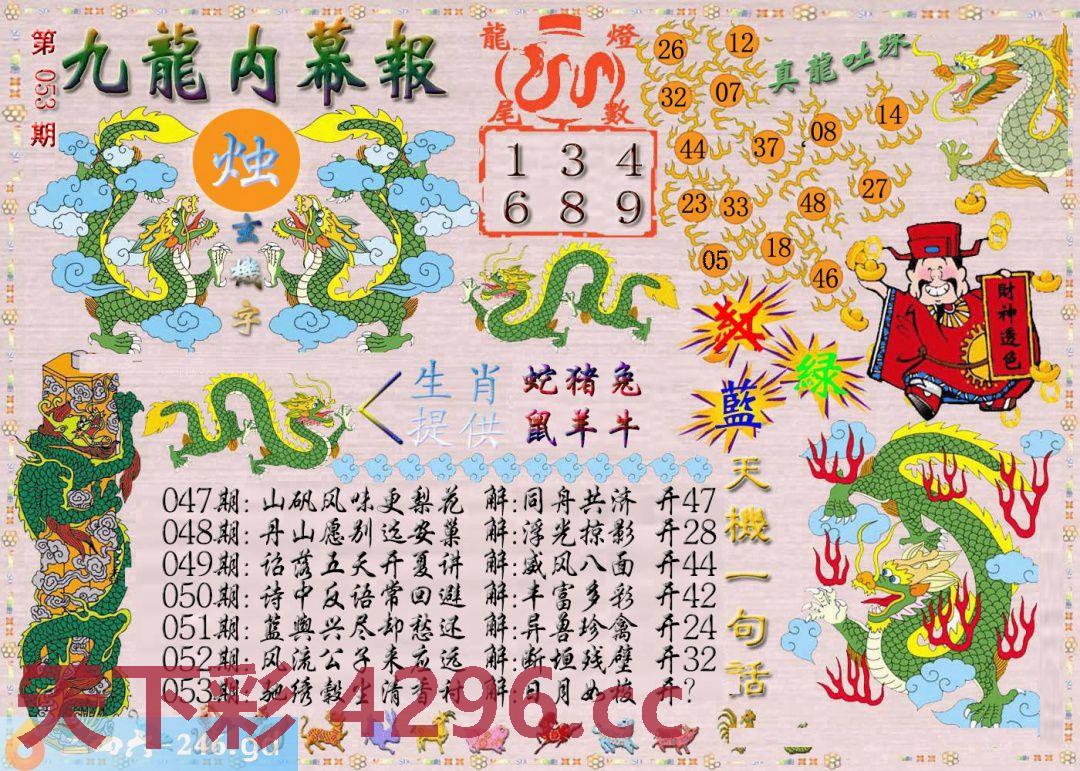 第053期
九龍内幕報
烛
玄機字
龍燈
尾數
1 3 4
6 8 9
真龍吐珠
26 12
32 07
14
44 37 08
23 33 48 27
05 18 46
財神透色
紅
綠
藍
生肖提供
蛇猪兔
鼠羊牛
天機一句話
047期: 山矾风味更梨花 解:同舟共济 开47
048期: 丹山愿别远安巢 解:浮光掠影 开28
049期: 话落五天开夏讲 解:威风八面 开44
050期: 诗中反语常回避 解:丰富多彩 开42
051期: 蓝舆兴尽却愁还 解:异兽珍禽 开24
052期: 风流公子来应远 解:断垣残壁 开32
053期: 绣毂生清香衬 解:日月如梭 开?
天下彩 4296.cc
246.gd